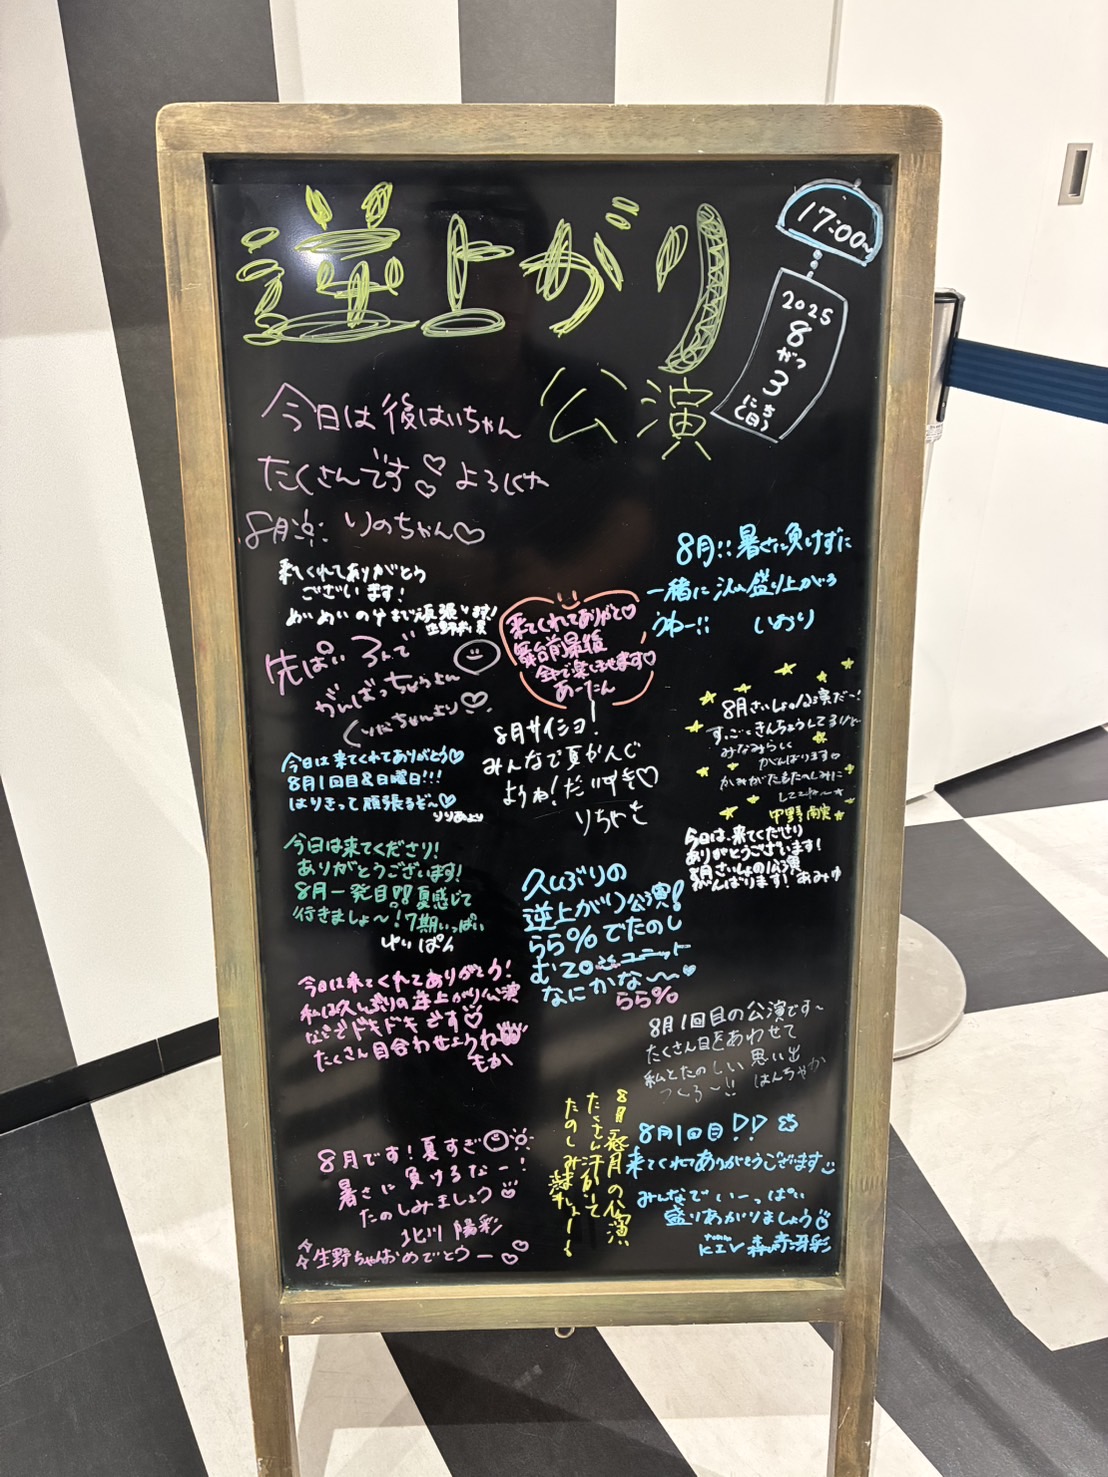 逆上がり
公演
17:00~
2025
8
がつ
3
にち
(日)
今日は後はいちゃん
たくさんです♡♡よろしくね
8月
りのちゃん♡
来てくれてありがとう
ございます!
めいめいの分まで頑張ります!
先ぱい
がんばっちゃうよん
くりたちゃんより♡
今日は来てくれてありがとう♡
8月1回目&日曜日!!!
はりきって頑張るぞ~♡
りりあより
今日は来てくださり!
ありがとうございます!
8月一発目!!夏感じて
行きましょ~!7期いっぱい
ゆいぱん
今日は来てくれてありがとう!
私は久しぶりの逆上がり公演
なのでドキドキです♡
たくさん目合わせようね
もか
8月です!夏すぎ
暑さに負けるなー!
たのしみましょう
北川 陽彩
生野ちゃんおめでとうー♡♡
来てくれてありがと♡
舞台前最後
全力で楽しませます♡
あーたん
8月サイショ!
みんなで夏かんじ
ようね!だいすき♡
りちゃと
久しぶりの
逆上がり公演!
らら%でたのし
む
ユニット
なにかな~♡
らら%
8月!!暑さに負けずに
一緒に 盛り上がろ
うねー!! しおり
8月さいしょの公演だー!
すっごくきんちょうしてるけど
みなみらしく
がんばります
たのしみに
しててね~
中野
今日は、来てくださり
ありがとうございます!
8月さいしょの公演
がんばります! あみゆ
8月1回目の公演です~
たくさん目をあわせて
私とたのしい思い出
つくろ~!! はんちゃか
8月 の公演
たくさん汗かいて
たのしみましょー!
8月1回目!!
来てくれてありがとうございます
みんなでいーっぱい
盛りあがりましょう
KIV 森﨑冴彩